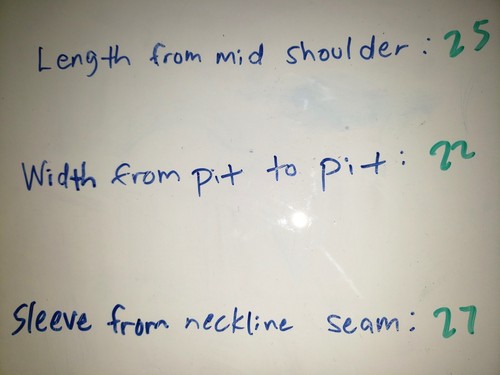 Length from mid shoulder: 25
Width from pit to pit: 22
Sleeve from neckline seam: 27